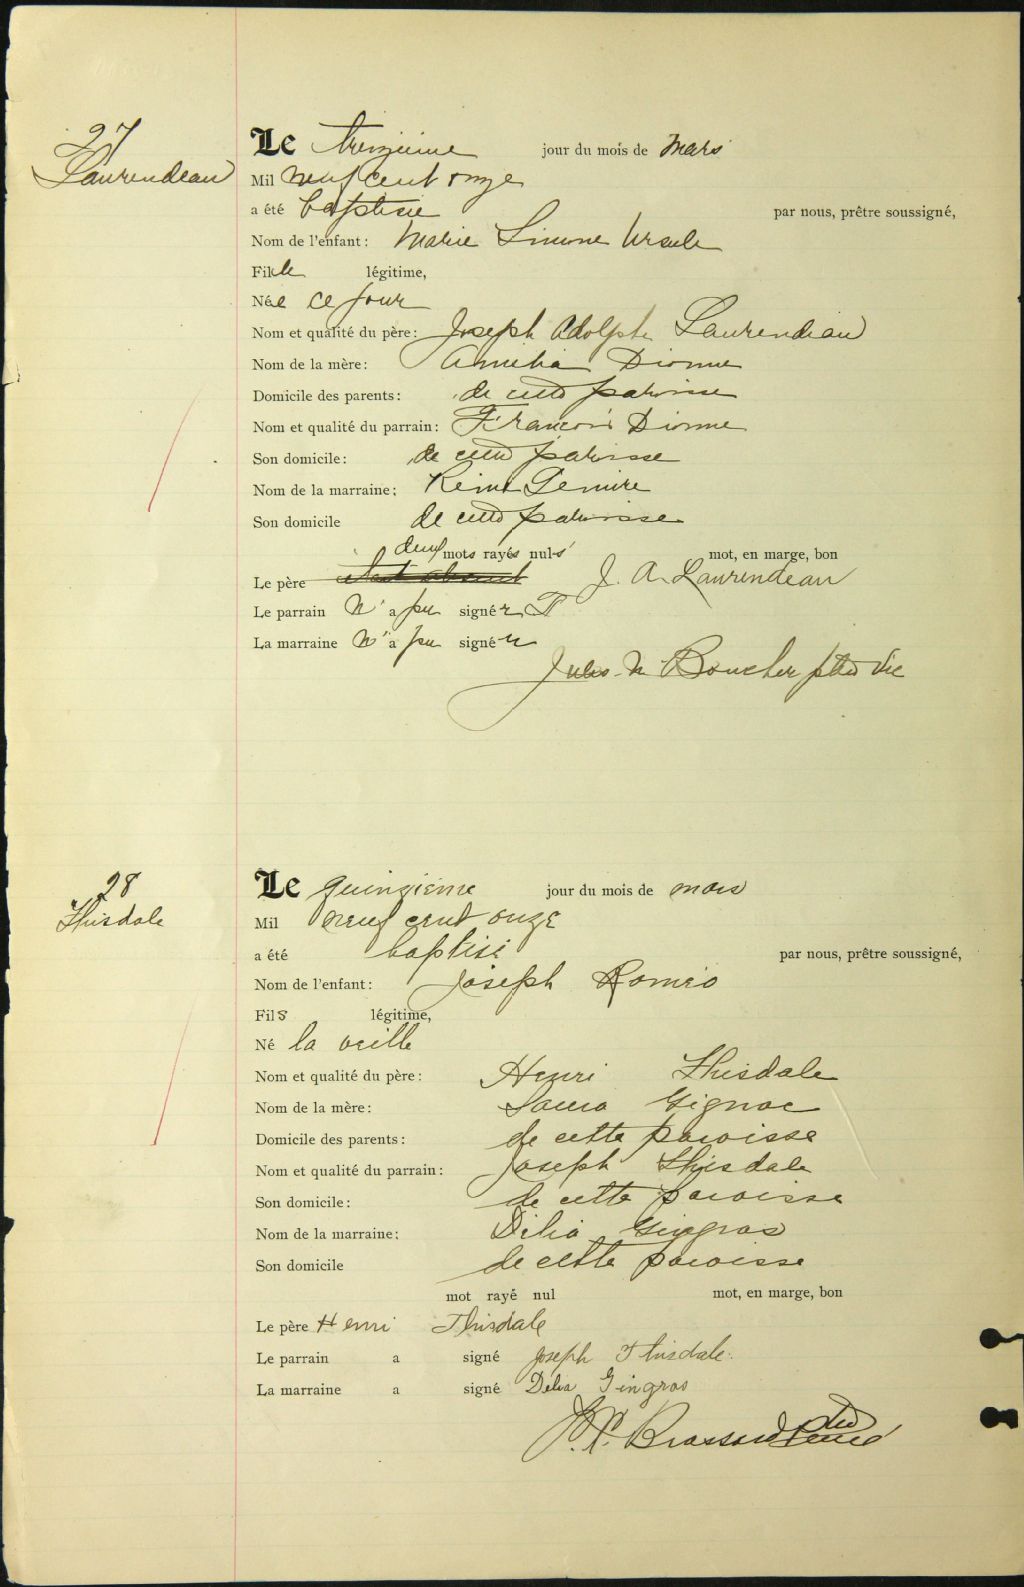 27
Laurendeau
Le treizième jour du mois de Mars
Mil neuf cent onze
a été baptisée par nous, prêtre soussigné,
Nom de l'enfant: Marie Simone Ursule
Fille légitime,
Née ce jour
Nom et qualité du père: Joseph Adolphe Laurendeau
Nom de la mère: Amelia Dionne
Domicile des parents: de cette paroisse
Nom et qualité du parrain: François Dionne
Son domicile: de cette paroisse
Nom de la marraine: Lemire
Son domicile de cette paroisse
deux mots rayés nuls mot, en marge, bon
Le père était absent J. A. Laurendeau
Le parrain n'a pu signer
La marraine n'a pu signer
Jules N Boucher ptre vic
28
Thisdale
Le quinzième jour du mois de mars
Mil neuf cent onze
a été baptisé par nous, prêtre soussigné,
Nom de l'enfant: Joseph Roméo
Fils légitime,
Né la veille
Nom et qualité du père: Henri Thisdale
Nom de la mère: Laura Gignac
Domicile des parents: de cette paroisse
Nom et qualité du parrain: Joseph Thisdale
Son domicile: de cette paroisse
Nom de la marraine: Délia Gingras
Son domicile de cette paroisse
mot rayé nul mot, en marge, bon
Le père Henri Thisdale
Le parrain a signé Joseph Thisdale
La marraine a signé Delia Gingras
Brassard ptre curé